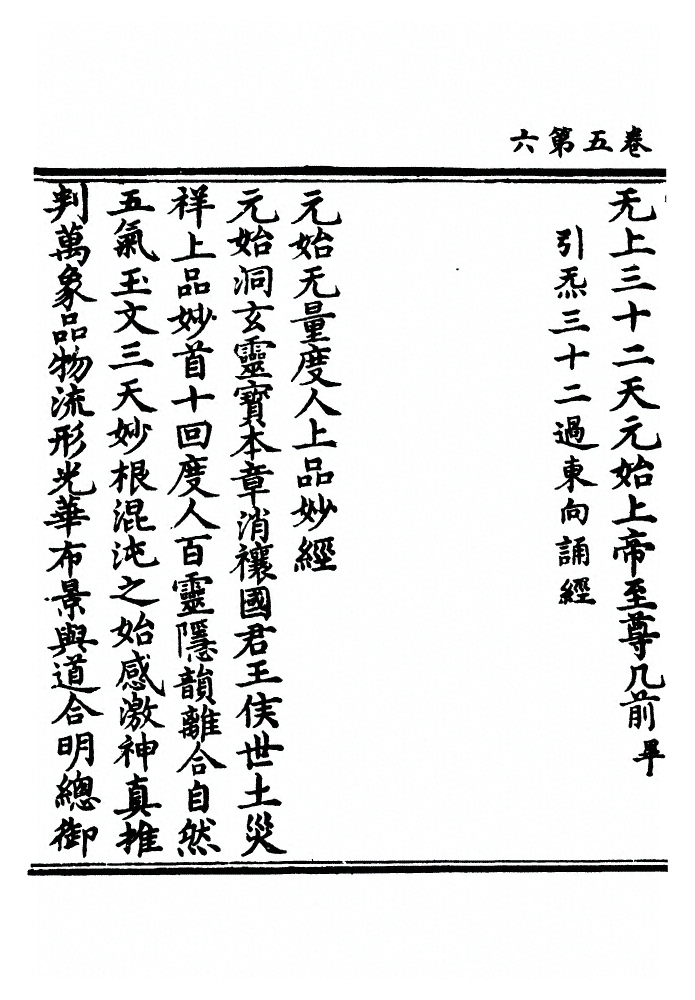 卷五第六
无上三十二天元始上帝至尊几前畢
引炁三十二過東向誦經
元始无量度人上品妙經
元始洞玄靈寶本章消禳國君王侯世土災
祥上品妙首十回度人百靈隱韻離合自然
五氣玉文三天妙根混沌之始感激神真推
判萬象品物流形光華布景與道合明總御